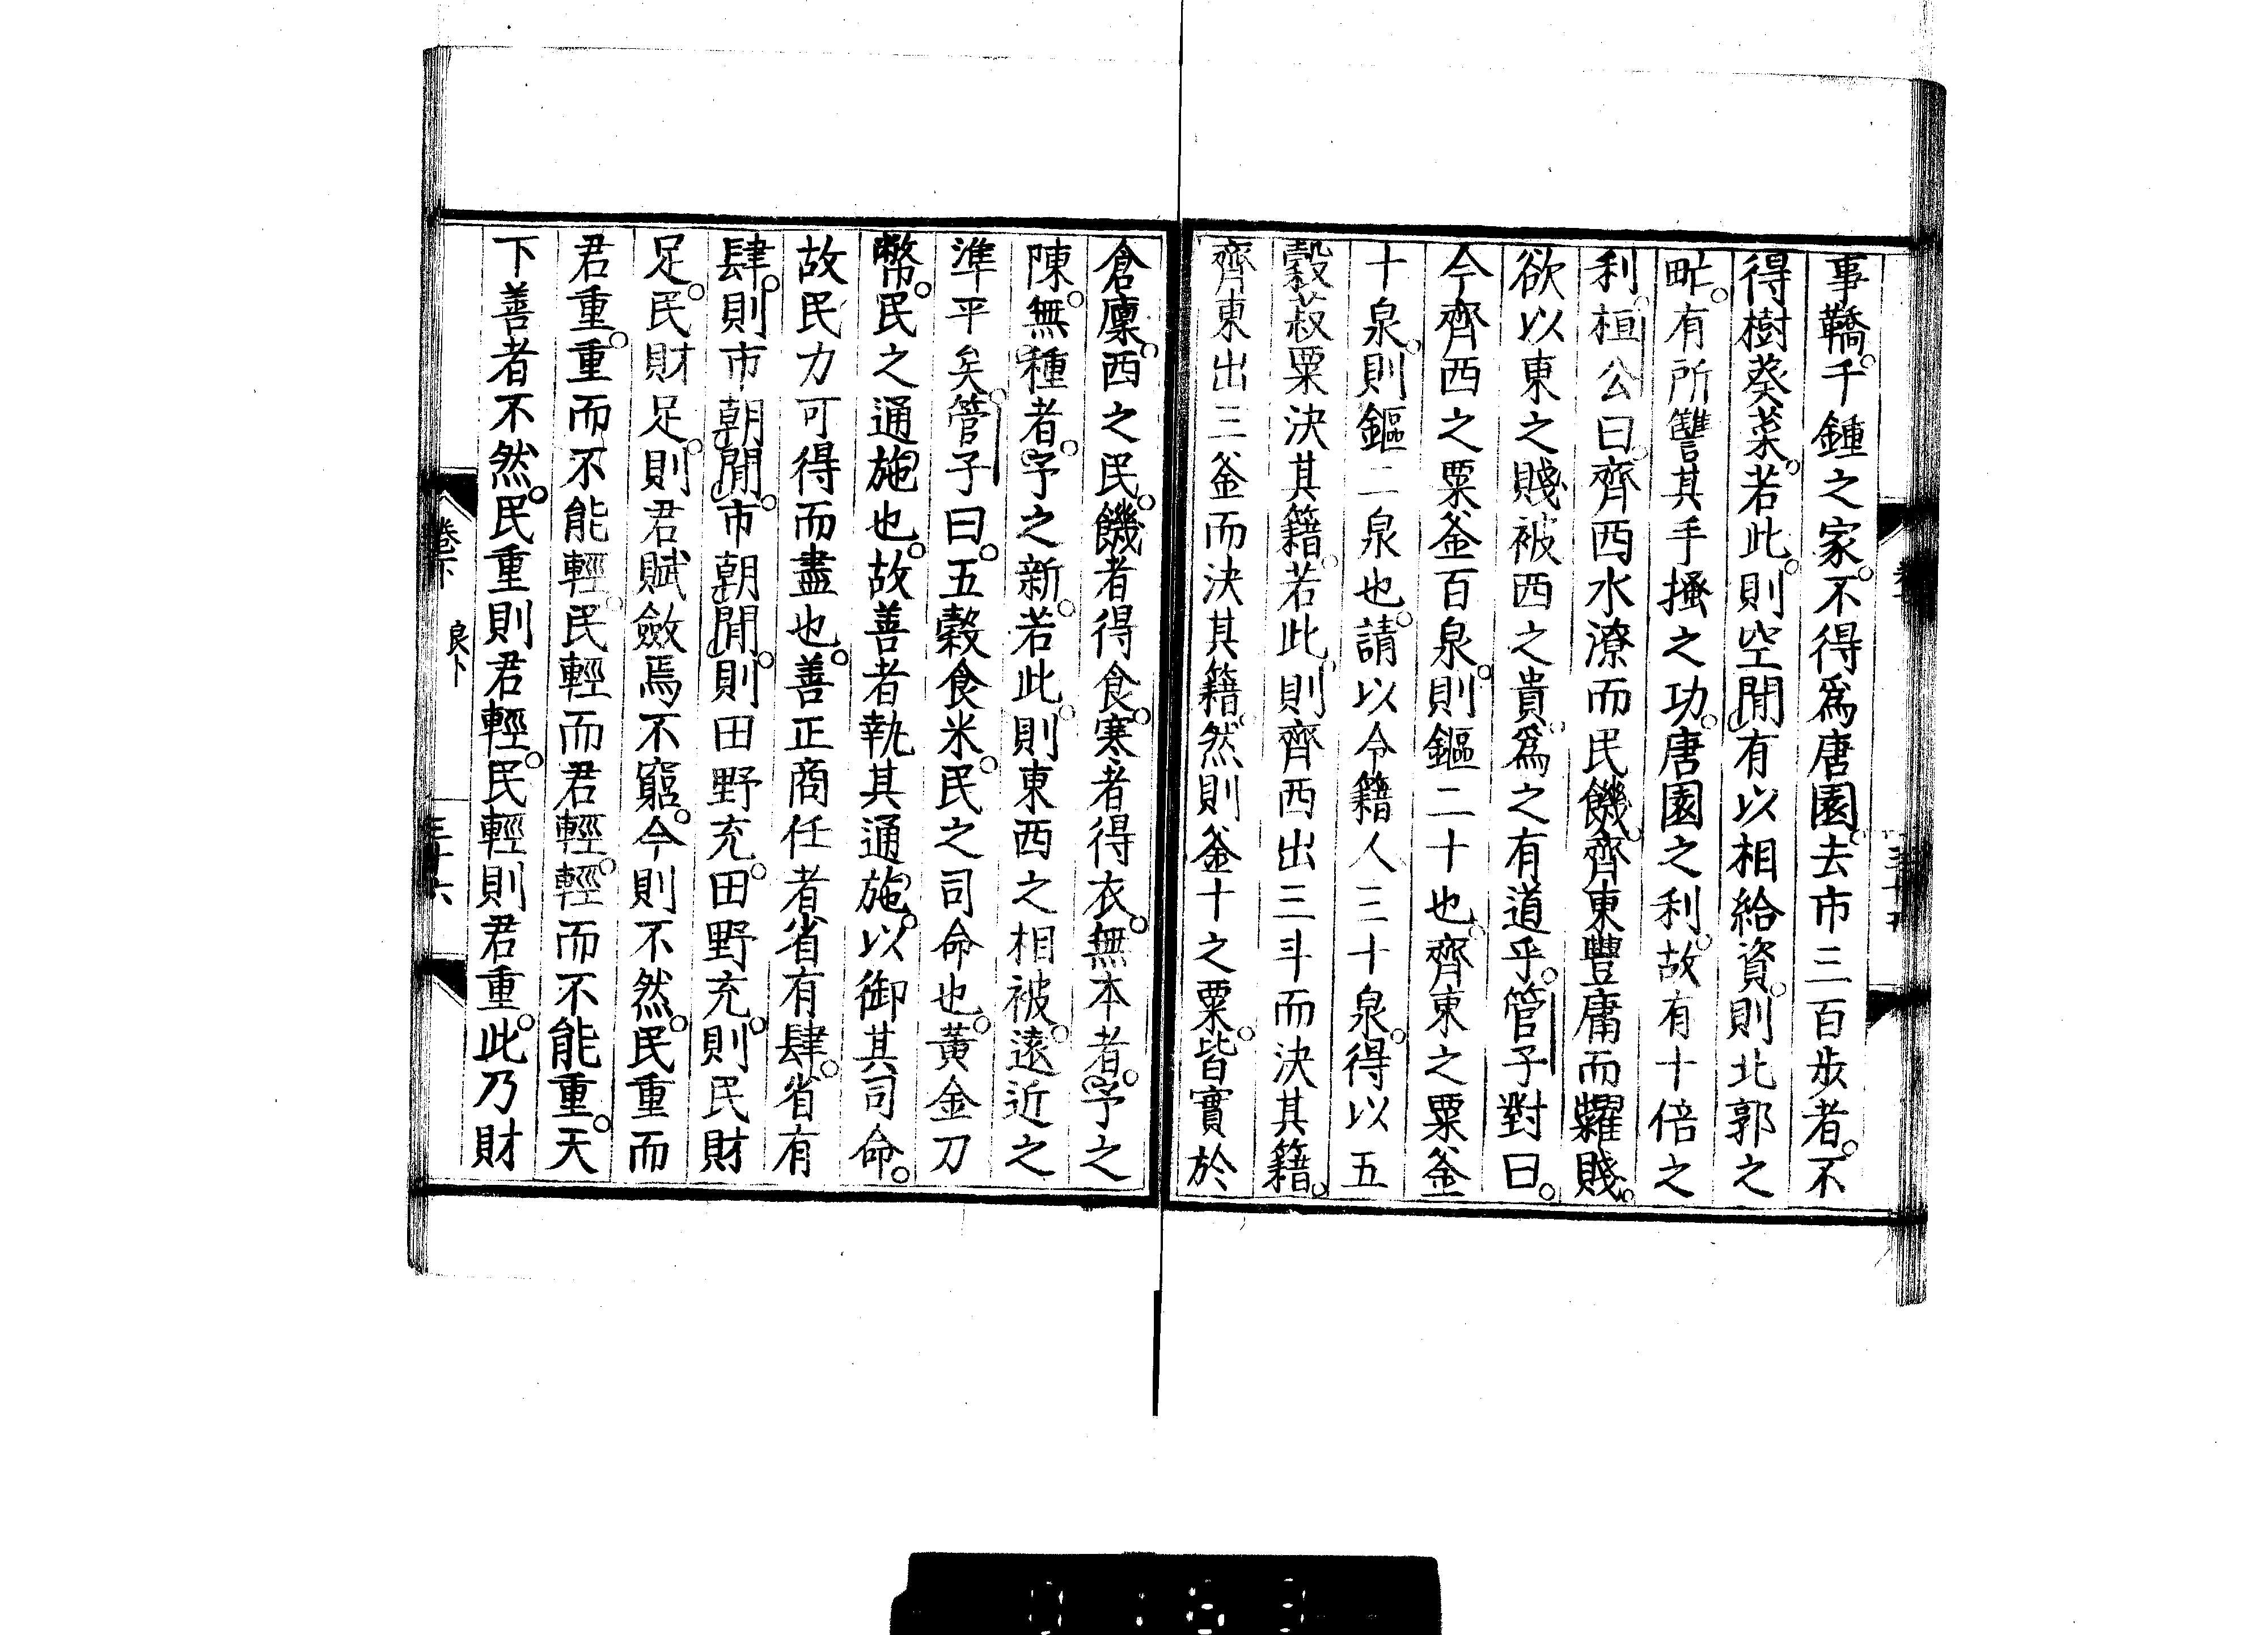 事鞽。千鍾之家。不得爲唐園。去市三百步者。不
得樹葵菜。若此。則空閒有以相給資。則北郭之
甿。有所讐其手搔之功。唐園之利。故有十倍之
利。桓公曰。齊西水潦而民饑。齊東豐庸而糶賤。
欲以東之賤。被西之貴。爲之有道乎。管子對曰。
今齊西之粟釜百泉。則鏂二十也。齊東之粟釜
十泉。則鏂二泉也。請以令籍人三十泉。得以五
穀菽粟決其籍。若此。則齊西出三斗而決其籍。
齊東出三釜而決其籍。然則釜十之粟。皆實於
倉廩。西之民。饑者得食。寒者得衣。無本者。予之
陳。無種者。予之新。若此。則東西之相被。遠近之
準平矣。管子曰。五穀食米。民之司命也。黃金刀
幣。民之通施也。故善者執其通施。以御其司命。
故民力可得而盡也。善正商任者省有肆。省有
肆。則市朝閒。市朝閒。則田野充。田野充。則民財
足。民財足。則君賦斂焉不窮。今則不然。民重而
君重。重而不能輕。民輕而君輕。輕而不能重。天
下善者不然。民重則君輕。民輕則君重。此乃財
卷下
三十六